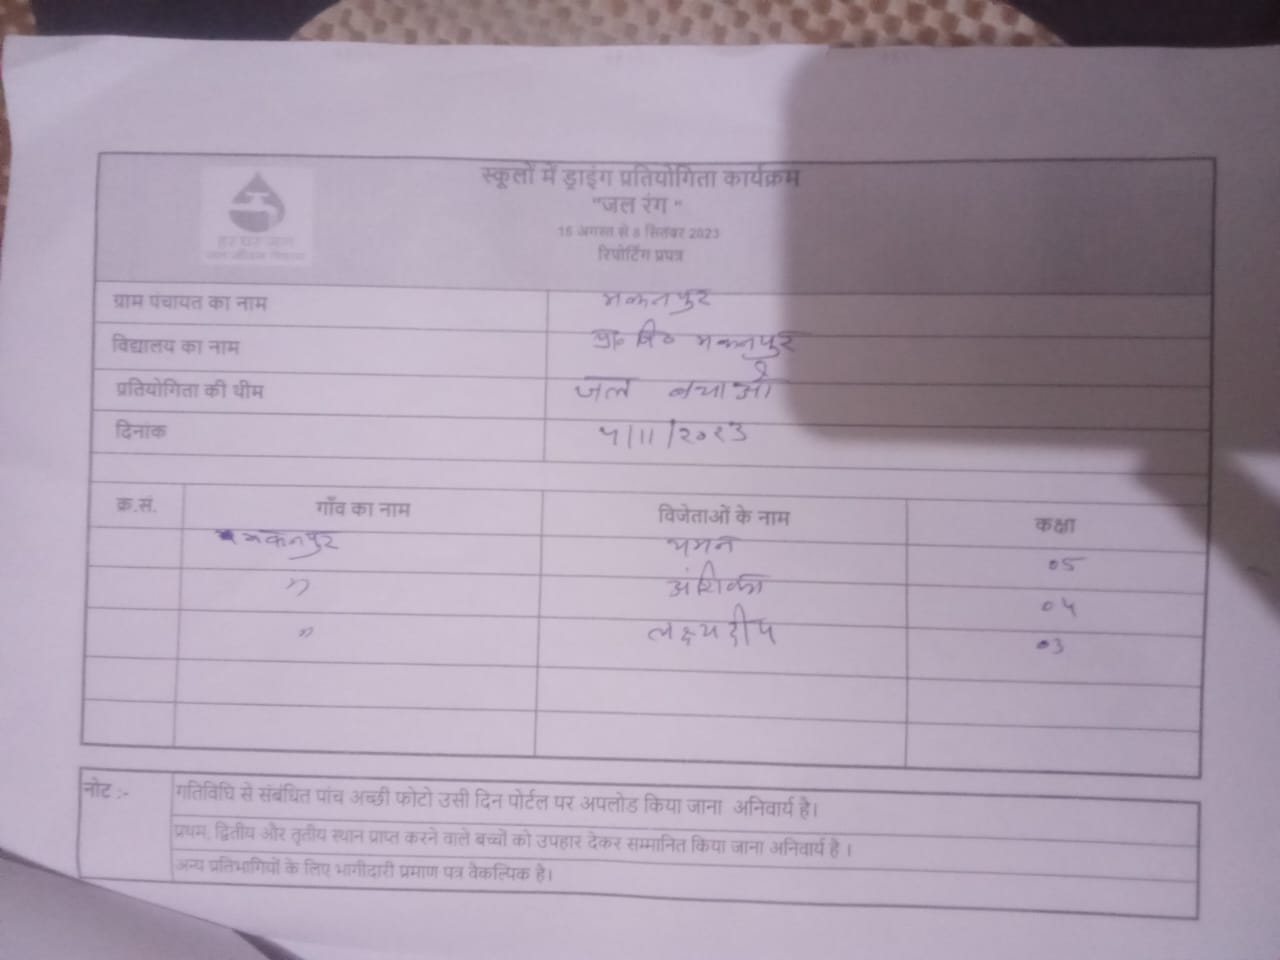 स्कूलों में ड्राइंग प्रतियोगिता कार्यक्रम
"जल रंग "
15 अगस्त से 8 सितंबर 2023
रिपोर्टिंग प्रपत्र
हर घर जल
जल जीवन मिशन
ग्राम पंचायत का नाम मकनपुर
विद्यालय का नाम प्रा० वि० मकनपुर
प्रतियोगिता की थीम जल बचाओ
दिनांक 4/11/2023
क्र.सं. गाँव का नाम विजेताओं के नाम कक्षा
मकनपुर 05
" अंशिका 04
" लक्ष्यदीप 03
नोट :- गतिविधि से संबंधित पांच अच्छी फोटो उसी दिन पोर्टल पर अपलोड किया जाना अनिवार्य है।
प्रथम, द्वितीय और तृतीय स्थान प्राप्त करने वाले बच्चों को उपहार देकर सम्मानित किया जाना अनिवार्य है ।
अन्य प्रतिभागियों के लिए भागीदारी प्रमाण पत्र वैकल्पिक है।